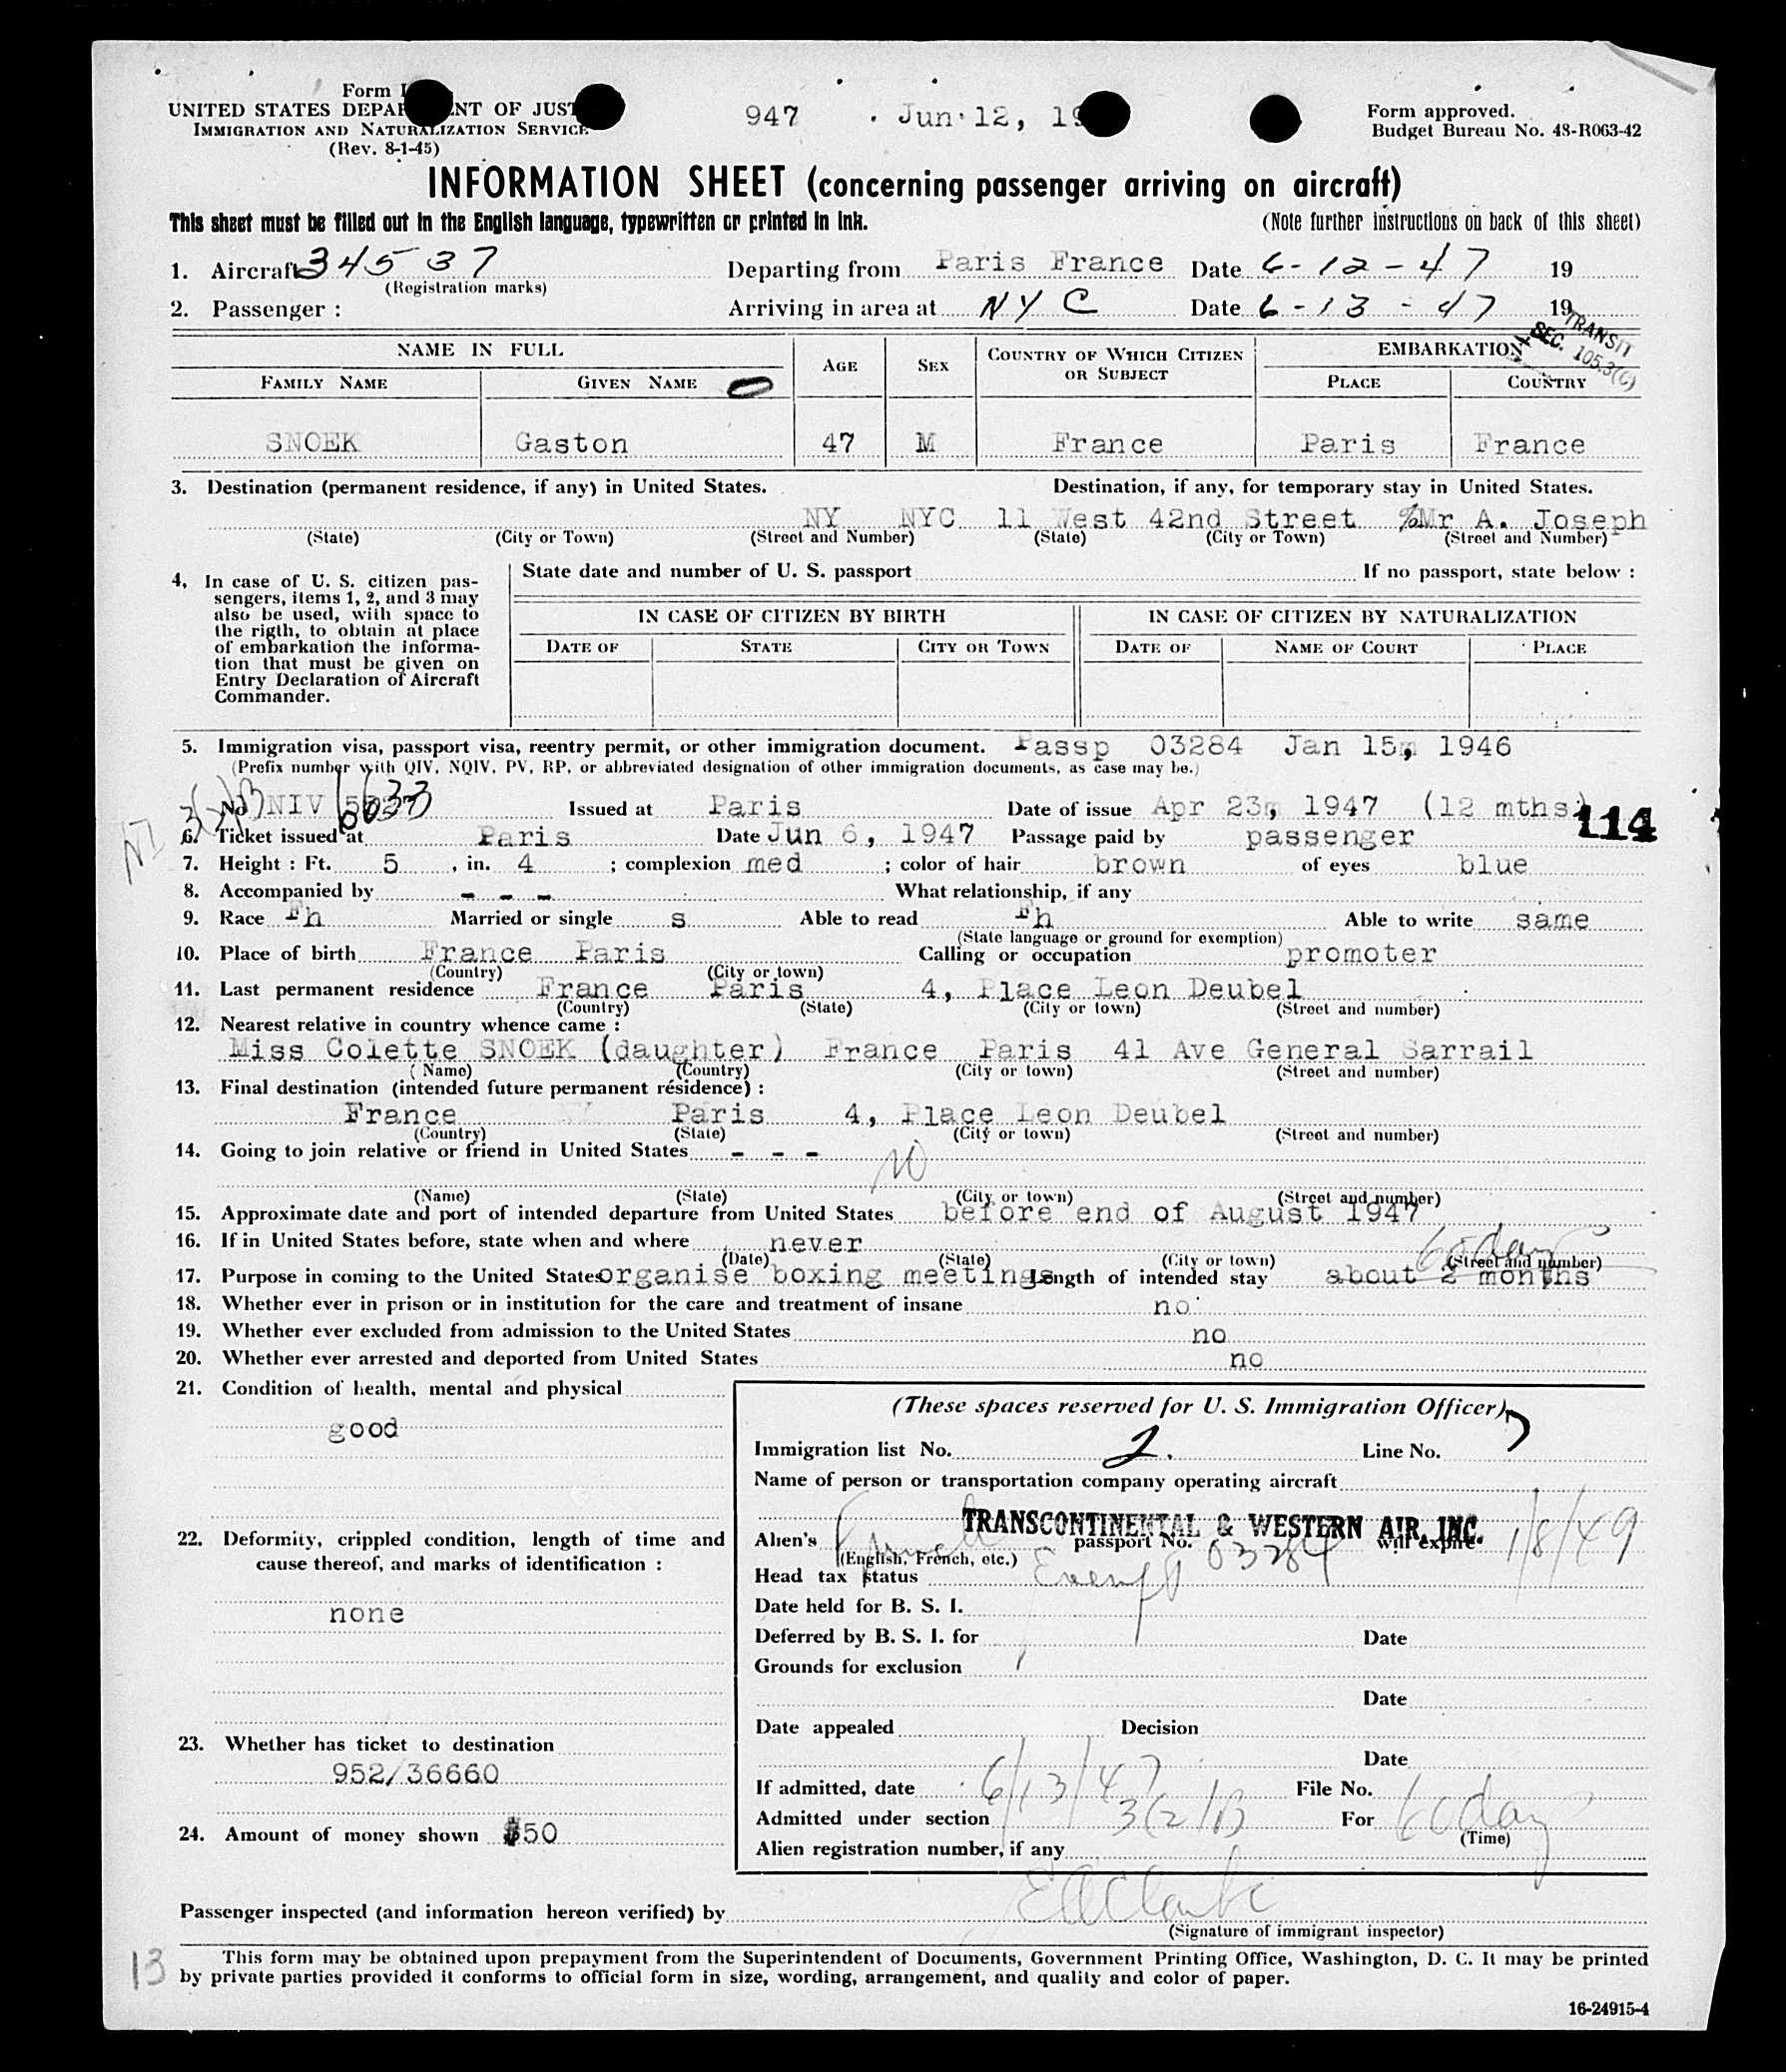 Form
UNITED STATES DEPARTMENT OF JUSTICE
IMMIGRATION AND NATURALIZATION SERVICE
(Rev. 8-1-45)
947 Jun 12, 19
Form approved.
Budget Bureau No. 43-R063-42
INFORMATION SHEET (concerning passenger arriving on aircraft)
This sheet must be filled out in the English language, typewritten or printed in ink. (Note further instructions on back of this sheet)
1. Aircraft 34537 Departing from Paris France Date 6-12-47 19
(Registration marks)
2. Passenger : Arriving in area at NYC Date 6-13-47 19
TRANSIT
SEC. 105.3(C)
NAME IN FULL AGE SEX COUNTRY OF WHICH CITIZEN OR SUBJECT EMBARKATION
FAMILY NAME GIVEN NAME PLACE COUNTRY
SNOEK Gaston 47 M France Paris France
3. Destination (permanent residence, if any) in United States. Destination, if any, for temporary stay in United States.
NY NYC 11 West 42nd Street %Mr A. Joseph
(State) (City or Town) (Street and Number) (State) (City or Town) (Street and Number)
4. In case of U. S. citizen pas-
sengers, items 1, 2, and 3 may
also be used, with space to
the rigth, to obtain at place
of embarkation the informa-
tion that must be given on
Entry Declaration of Aircraft
Commander.
State date and number of U. S. passport If no passport, state below :
IN CASE OF CITIZEN BY BIRTH IN CASE OF CITIZEN BY NATURALIZATION
DATE OF STATE CITY OR TOWN DATE OF NAME OF COURT PLACE
5. Immigration visa, passport visa, reentry permit, or other immigration document. Passp 03284 Jan 15, 1946
(Prefix number with QIV, NQIV, PV, RP, or abbreviated designation of other immigration documents, as case may be.)
3(2)B
No NIV 6633 Issued at Paris Date of issue Apr 23, 1947 (12 mths)
114
6. Ticket issued at Paris Date Jun 6, 1947 Passage paid by passenger
7. Height : Ft. 5 , in. 4 ; complexion med ; color of hair brown of eyes blue
8. Accompanied by - - - What relationship, if any
9. Race Fh Married or single s Able to read Fh Able to write same
(State language or ground for exemption)
10. Place of birth France Paris Calling or occupation promoter
(Country) (City or town)
11. Last permanent residence France Paris 4, Place Leon Deubel
(Country) (State) (City or town) (Street and number)
12. Nearest relative in country whence came :
Miss Colette SNOEK (daughter) France Paris 41 Ave General Sarrail
(Name) (Country) (City or town) (Street and number)
13. Final destination (intended future permanent résidence) :
France Paris 4, Place Leon Deubel
(Country) (State) (City or town) (Street and number)
14. Going to join relative or friend in United States - - - NO
(Name) (State) (City or town) (Street and number)
15. Approximate date and port of intended departure from United States before end of August 1947
16. If in United States before, state when and where never 60 days
(Date) (State) (City or town) (Street and number)
17. Purpose in coming to the United States organise boxing meetings Length of intended stay about 2 months
18. Whether ever in prison or in institution for the care and treatment of insane no
19. Whether ever excluded from admission to the United States no
20. Whether ever arrested and deported from United States no
21. Condition of health, mental and physical
good
22. Deformity, crippled condition, length of time and
cause thereof, and marks of identification :
none
23. Whether has ticket to destination
952/36660
24. Amount of money shown $50
(These spaces reserved for U. S. Immigration Officer)
Immigration list No. 2. Line No. 7
Name of person or transportation company operating aircraft
TRANSCONTINENTAL & WESTERN AIR, INC.
Alien's French passport No. 03284 will expire 1/8/49
(English, French, etc.)
Head tax status Exempt
Date held for B. S. I.
Deferred by B. S. I. for Date
Grounds for exclusion
Date
Date appealed Decision
Date
If admitted, date 6/13/47 File No.
Admitted under section 3(2)B For 60 days
(Time)
Alien registration number, if any
Passenger inspected (and information hereon verified) by E A Clark
(Signature of immigrant inspector)
13
This form may be obtained upon prepayment from the Superintendent of Documents, Government Printing Office, Washington, D. C. It may be printed
by private parties provided it conforms to official form in size, wording, arrangement, and quality and color of paper.
16-24915-4